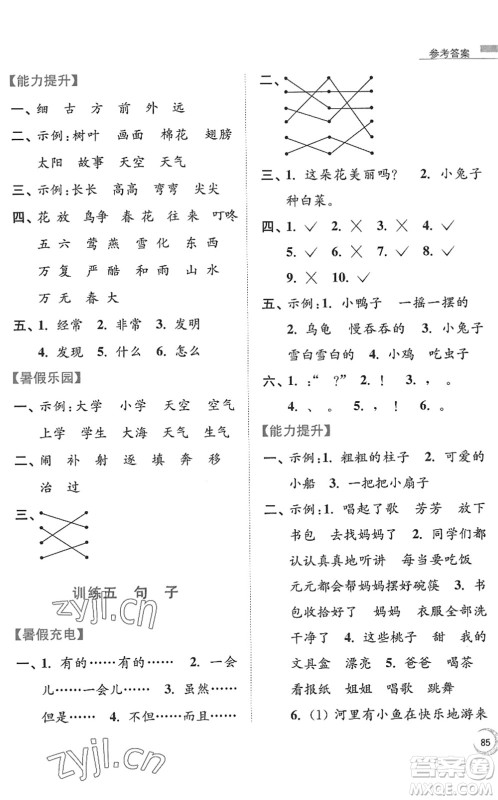 参考答案
【能力提升】
一、细 古 方 前 外 远
二、示例:树叶 画面 棉花 翅膀
太阳 故事 天空 天气
三、示例:长长 高高 弯弯 尖尖
四、花 放 鸟争 春花 往来 叮咚
五六 莺燕 雪化 东西
万复 严酷 和雨 山水
万无 春大
五、1. 经常 2. 非常 3. 发明
4. 发现 5. 什么 6. 怎么
【暑假乐园】
一、示例:大学 小学 天空 空气
上学 学生 大海 天气 生气
二、闹 补 射 梦 环 择 进
治 过
三、
训练五 句 子
【暑假充电】
一、1. 有的……有的…… 2. 一会
儿……一会儿…… 3. 虽然……
但是…… 4. 不但……而且……
二、
三、1. 这朵花美丽吗? 2. 小兔子
种白菜。
四、1. ✓ 2. ✕ 3. ✕ 4. ✕
5. ✓ 6. ✓ 7. ✓ 8. ✓
9. ✕ 10. ✓
五、示例:1. 小鸭子 一摇一摆的
2. 乌龟 慢吞吞的 3. 小兔子
雪白雪白的 4. 小鸡 吃虫子
六、1. :“ ?” 2. ! 3. , 。
4. 、 。 5. ! 6. , 。
【能力提升】
一、示例:1. 粗粗的柱子 2. 可爱的
小船 3. 一把把小扇子
二、示例:1. 唱起了歌 芳芳 放下
书包 去找妈妈了 2. 同学们都
认认真真地听讲 3. 妈妈打扫
元元都会帮妈妈摆好碗筷 4. 我
看见 妈妈 大家把衣服洗
干净了 4. 这些桃子 甜 我的
文具盒 漂亮 5. 爸爸 喝茶
看报纸 姐姐 唱歌 跳舞
6. (1) 河里有小鱼在快乐地游来
85
zyjl.cn
zyjl.cn
答案圈